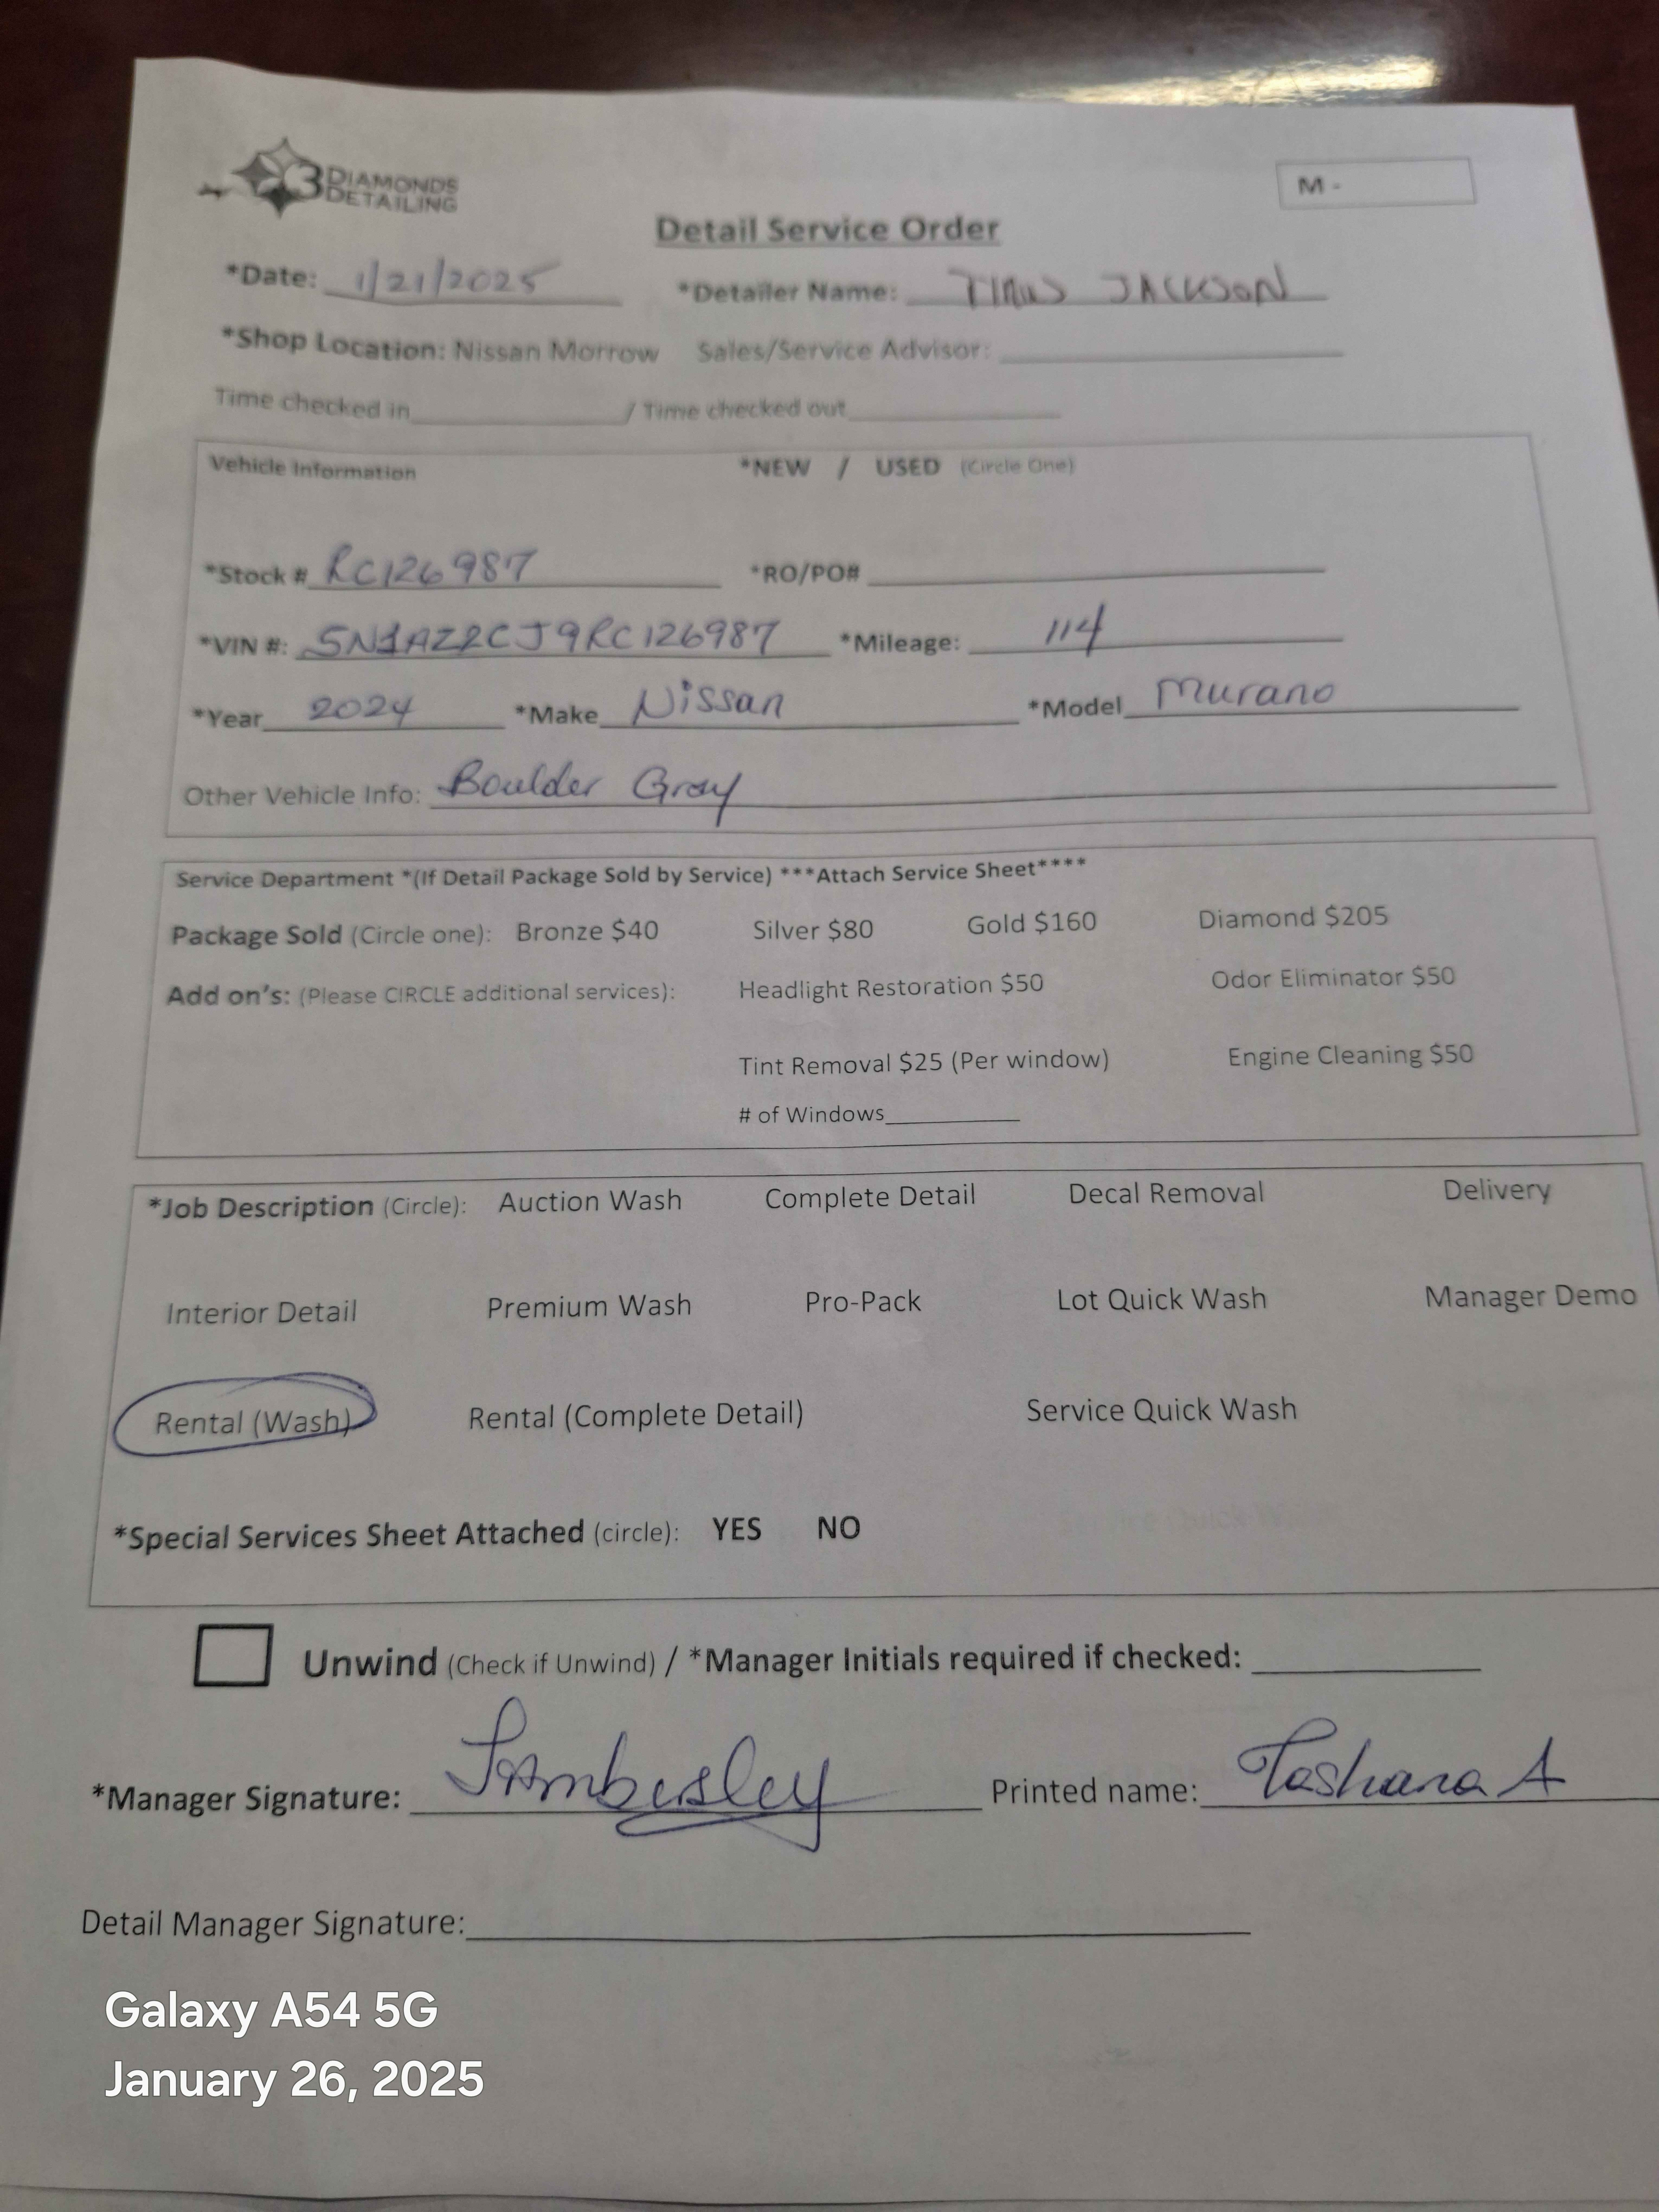 3 DIAMONDS
DETAILING
M -
Detail Service Order
*Date: 1/21/2025 *Detailer Name: JACKSON
*Shop Location: Nissan Morrow Sales/Service Advisor:
Time checked in / Time checked out
Vehicle Information *NEW / USED (Circle One)
*Stock # RC126987 *RO/PO#
*VIN #: 5N1AZ2CJ9RC126987 *Mileage: 114
*Year 2024 *Make Nissan *Model Murano
Other Vehicle Info: Boulder Gray
Service Department *(If Detail Package Sold by Service) ***Attach Service Sheet****
Package Sold (Circle one): Bronze $40 Silver $80 Gold $160 Diamond $205
Add on's: (Please CIRCLE additional services): Headlight Restoration $50 Odor Eliminator $50
Tint Removal $25 (Per window) Engine Cleaning $50
# of Windows
*Job Description (Circle): Auction Wash Complete Detail Decal Removal Delivery
Interior Detail Premium Wash Pro-Pack Lot Quick Wash Manager Demo
Rental (Wash) Rental (Complete Detail) Service Quick Wash
*Special Services Sheet Attached (circle): YES NO
Unwind (Check if Unwind) / *Manager Initials required if checked:
*Manager Signature: Printed name: Tashana A
Detail Manager Signature:
Galaxy A54 5G
January 26, 2025